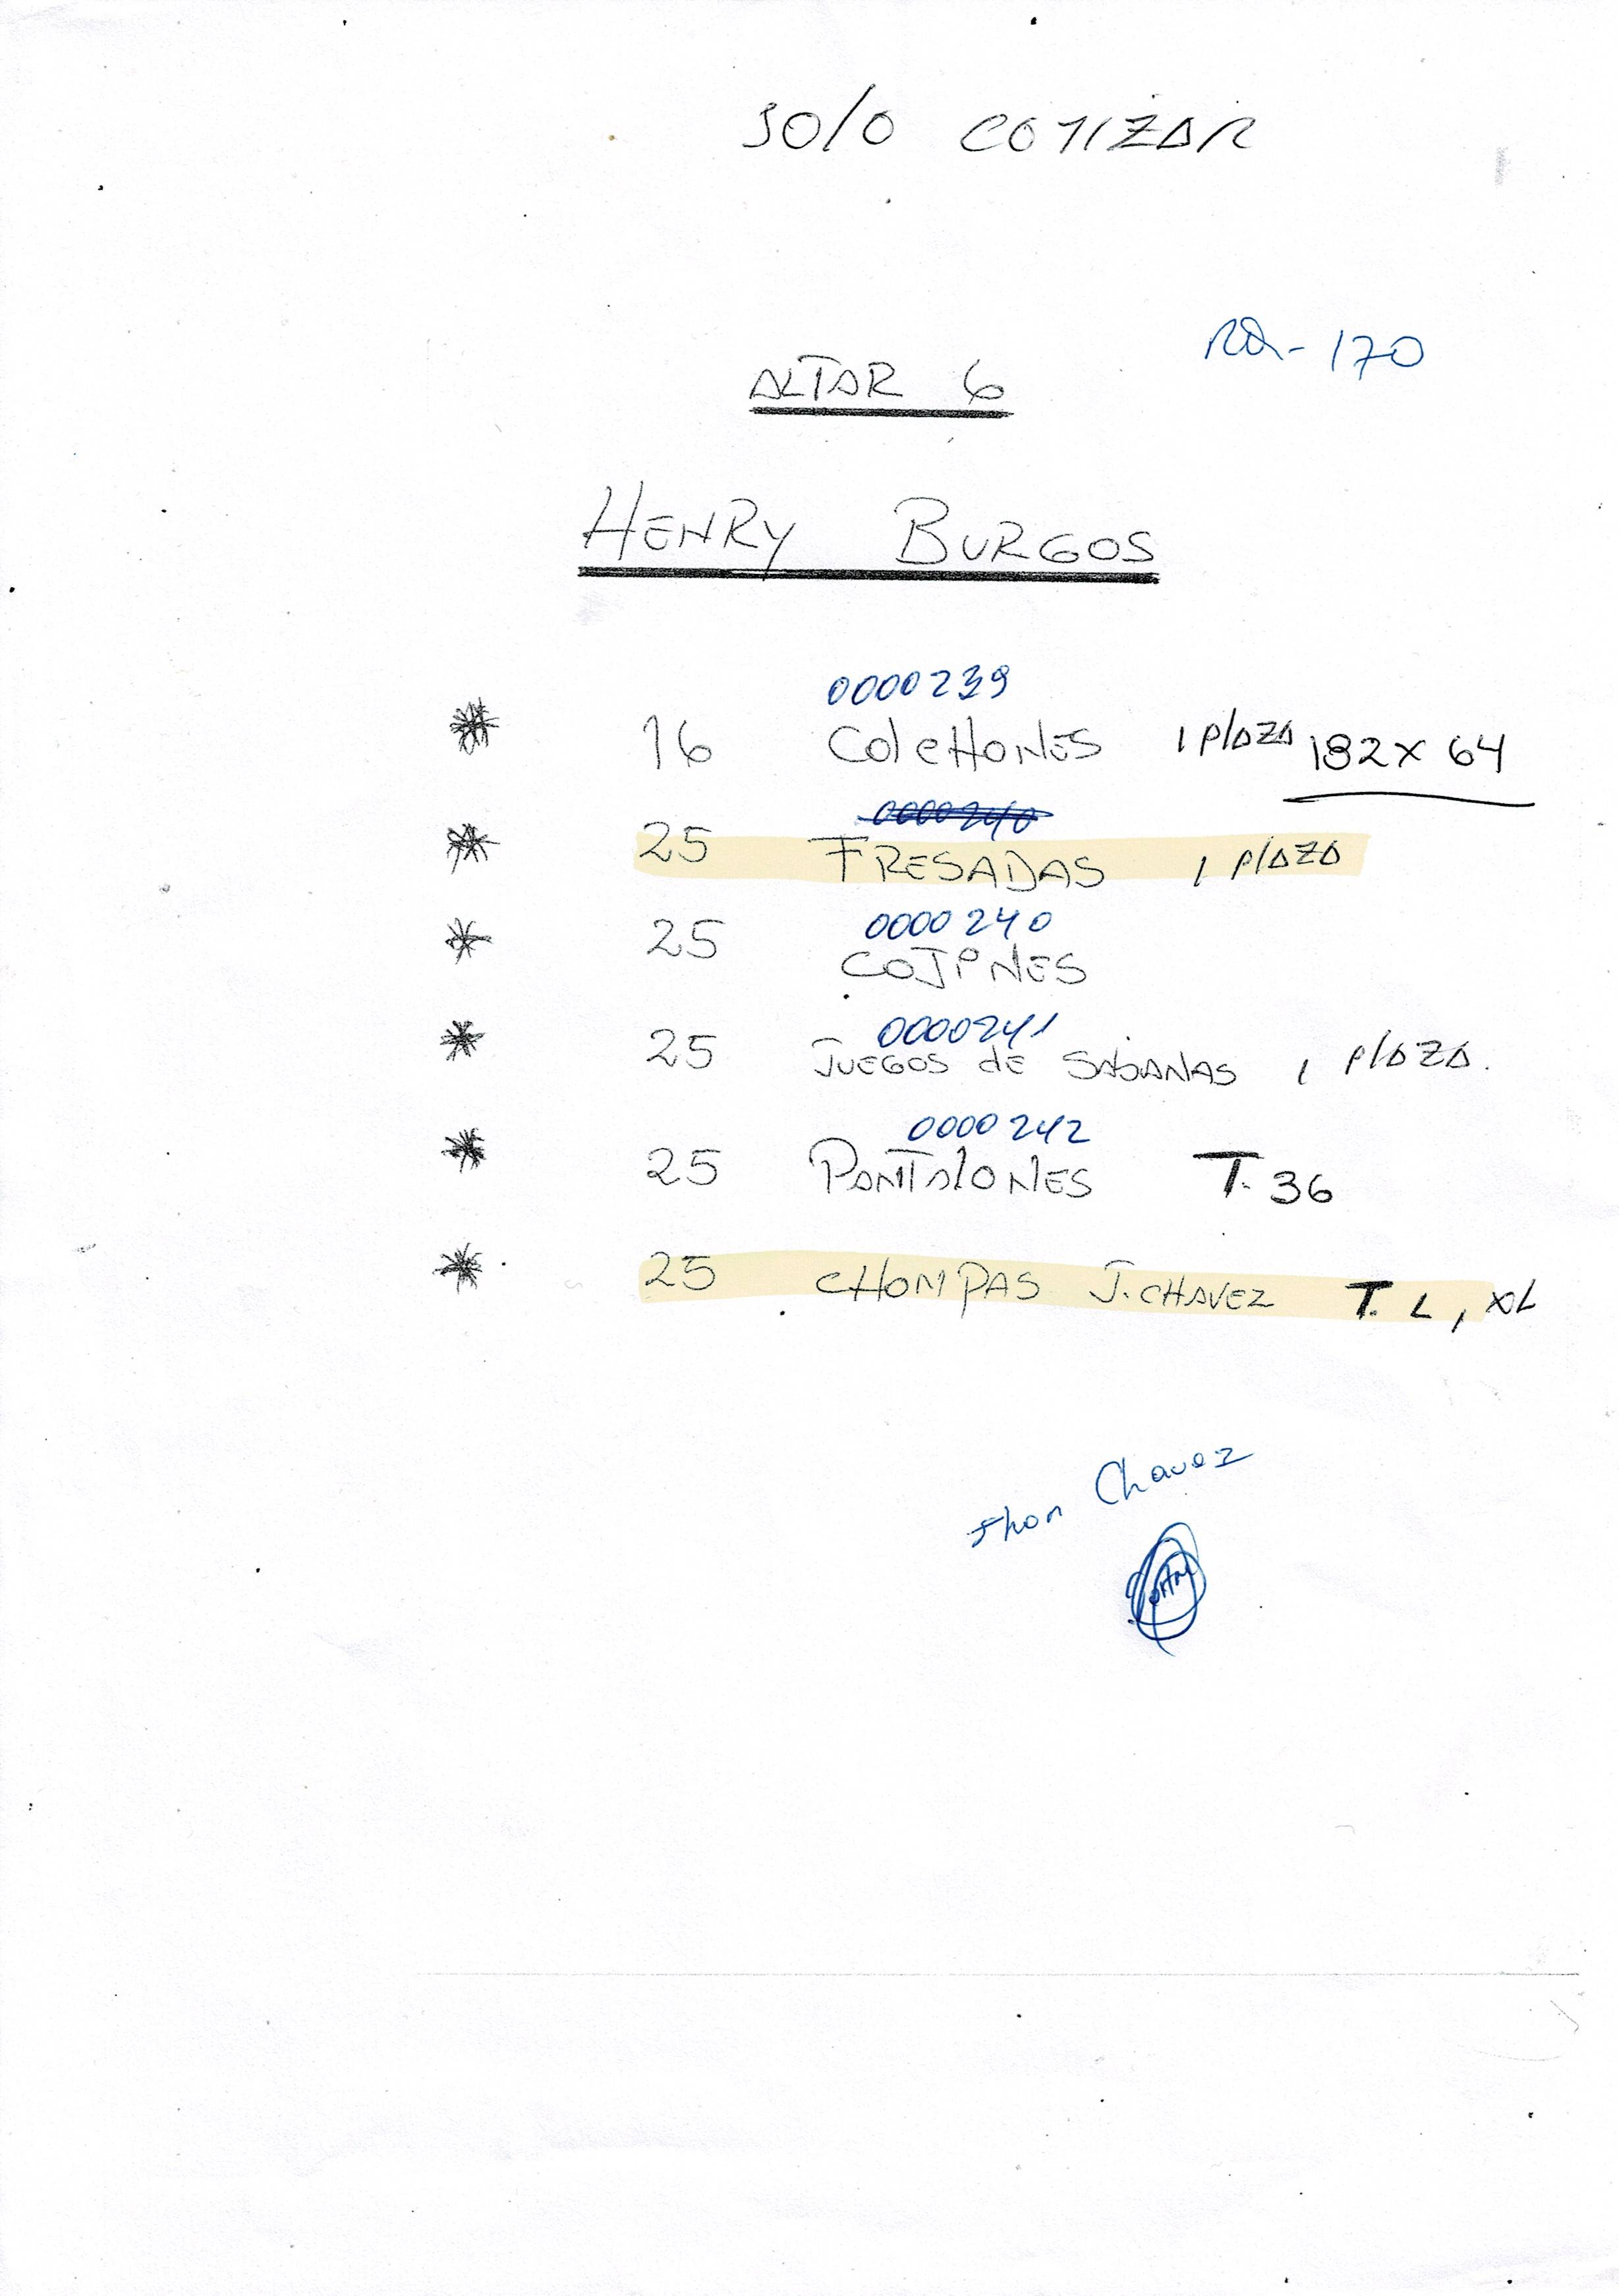 SOLO COTIZAR
RQ-170
ALTAR 6
HENRY BURGOS
0000239
* 16 COLCHONES 1 PLAZA 182 x 64
* 25 FRESADAS 1 PLAZA
0000240
* 25 COJINES
0000241
* 25 JUEGOS DE SABANAS 1 PLAZA.
0000242
* 25 PANTALONES T. 36
* 25 CHOMPAS J. CHAVEZ T. L, XL
Jhon Chavez